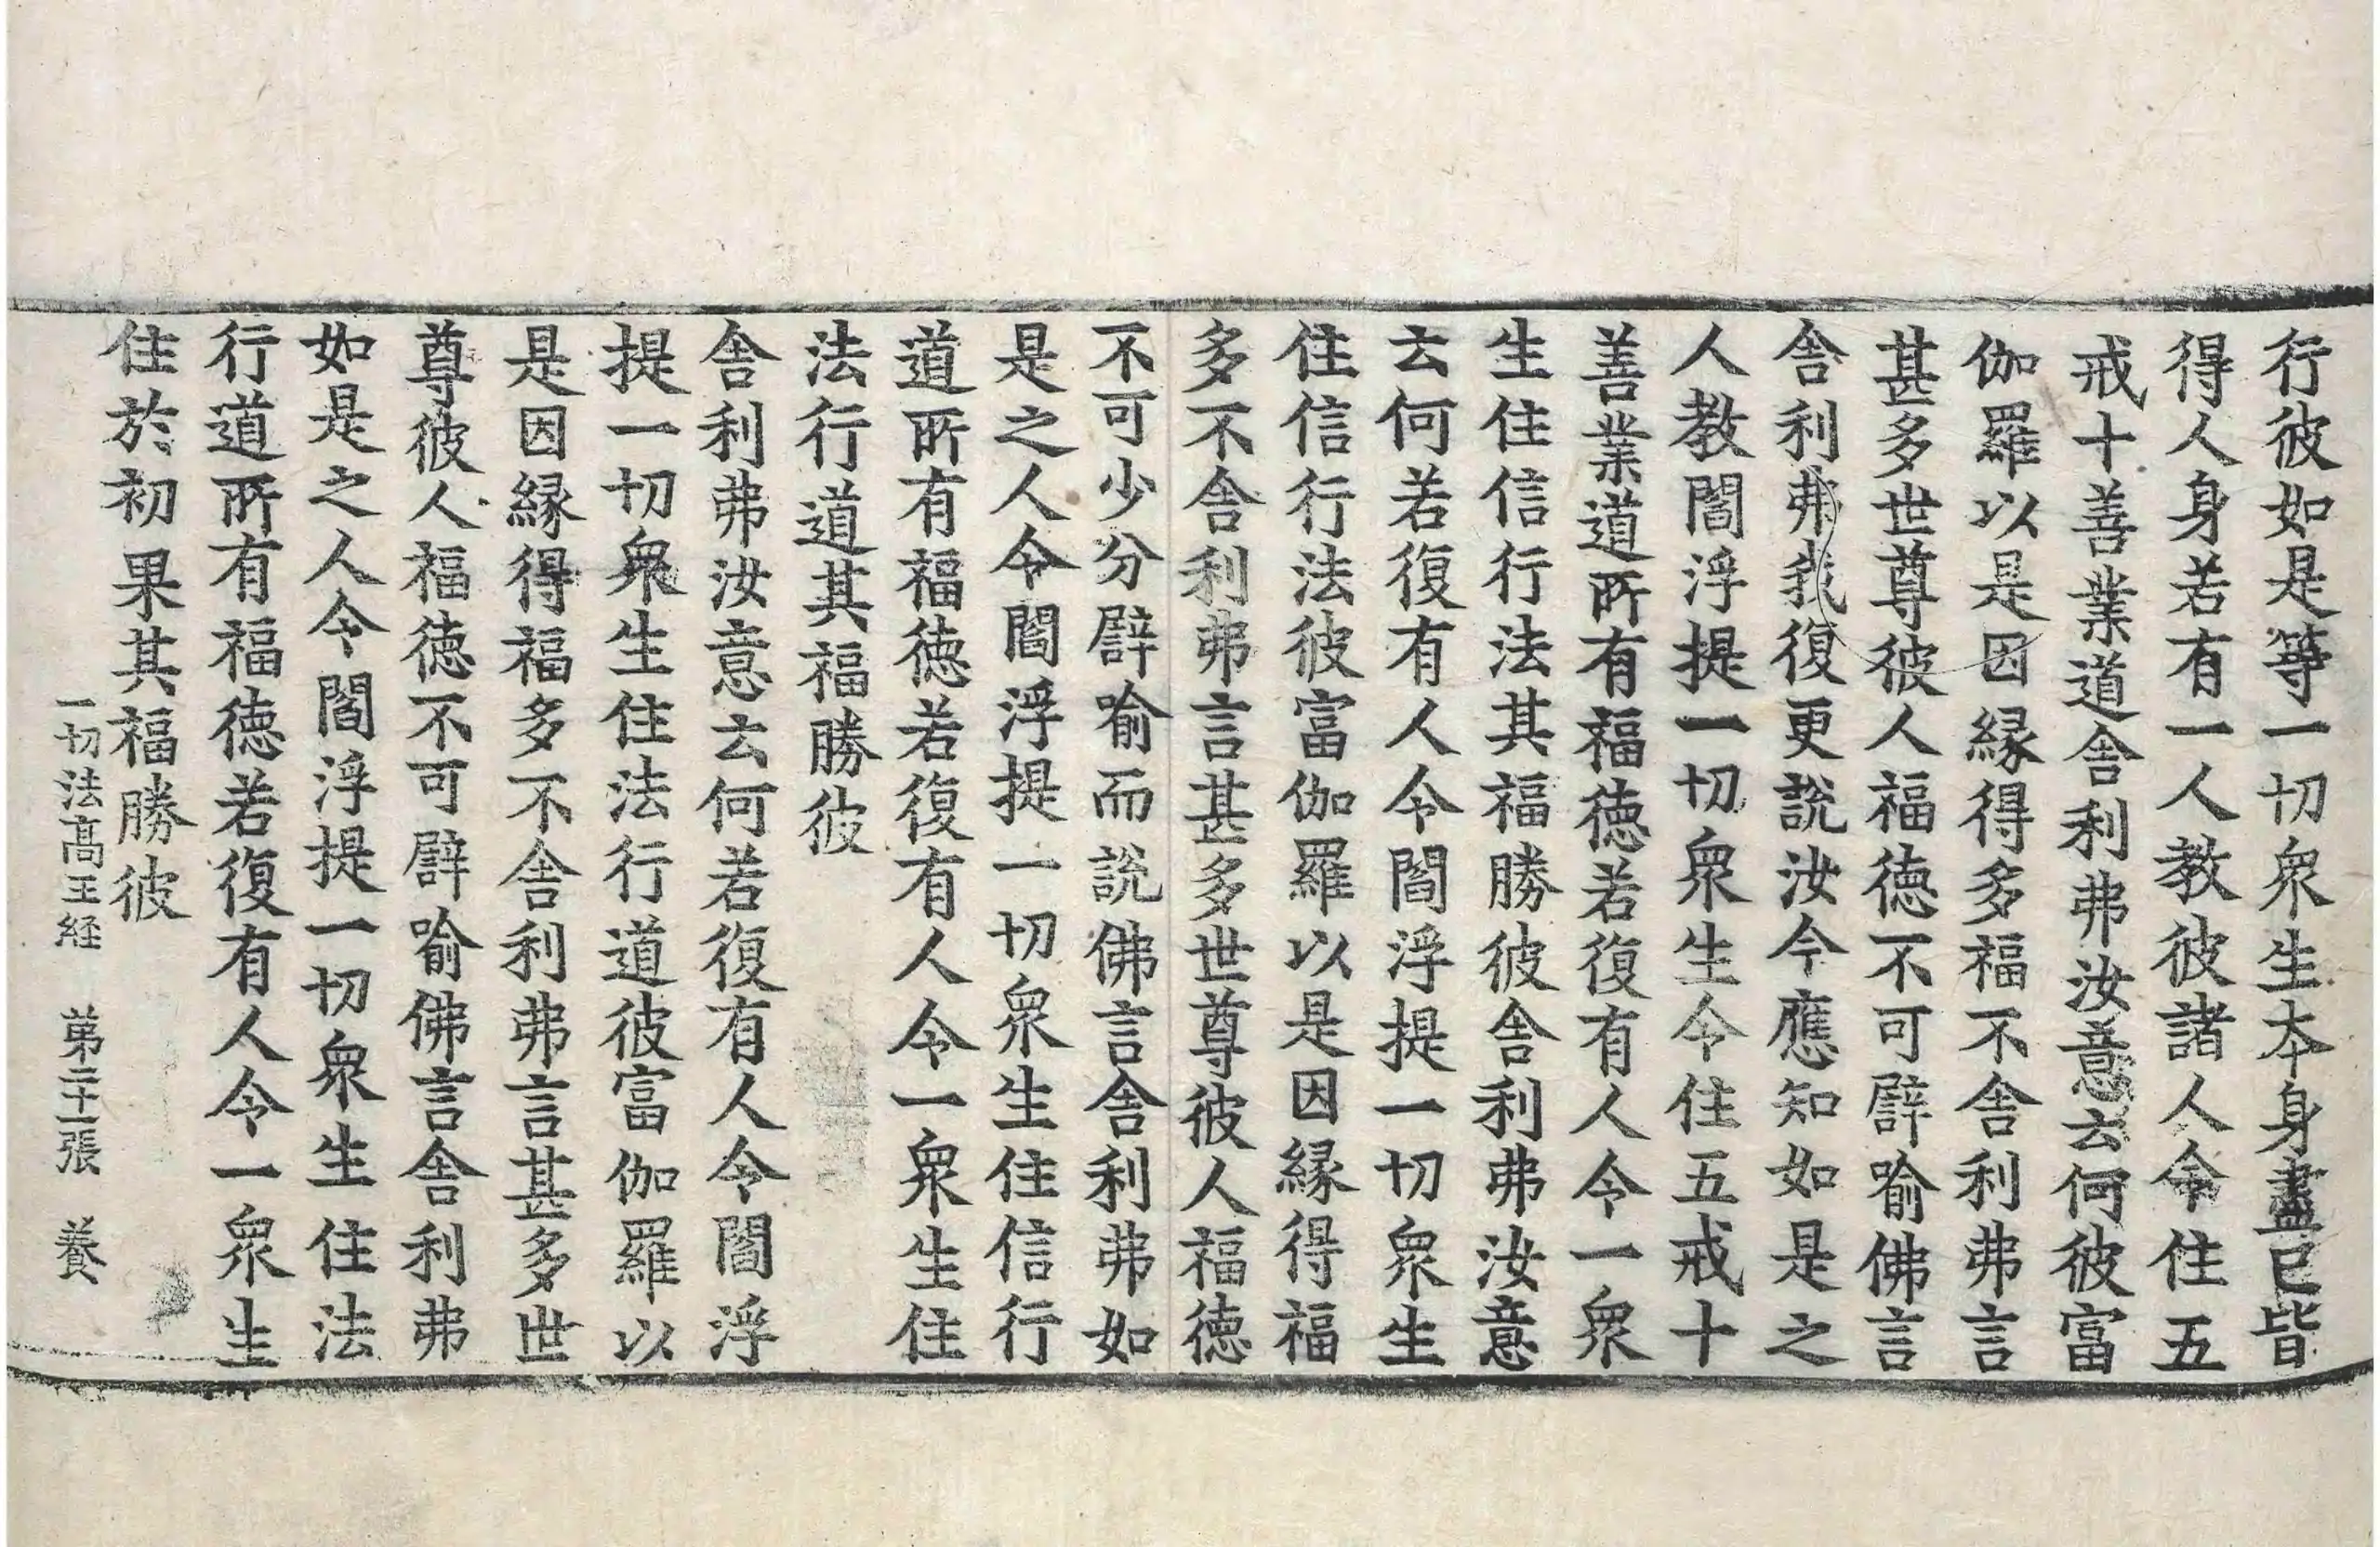 行彼如是等一切衆生本身盡已皆
得人身若有一人教彼諸人令住五
戒十善業道舎利弗汝意云何彼富
伽羅以是因縁得多福不舎利弗言
甚多世尊彼人福徳不可譬喻佛言
舎利弗我復更說汝今應知如是之
人教閻浮提一切衆生令住五戒十
善業道所有福徳若復有人令一衆
生住信行法其福勝彼舎利弗汝意
云何若復有人令閻浮提一切衆生
住信行法彼富伽羅以是因縁得福
多不舎利弗言甚多世尊彼人福徳
不可少分譬喻而說佛言舎利弗如
是之人令閻浮提一切衆生住信行
道所有福徳若復有人令一衆生住
法行道其福勝彼
舎利弗汝意云何若復有人令閻浮
提一切衆生住法行道彼富伽羅以
是因縁得福多不舎利弗言甚多世
尊彼人福徳不可譬喻佛言舎利弗
如是之人令閻浮提一切衆生住法
行道所有福徳若復有人令一衆生
住於初果其福勝彼
一切法髙王経 第二十一張 養